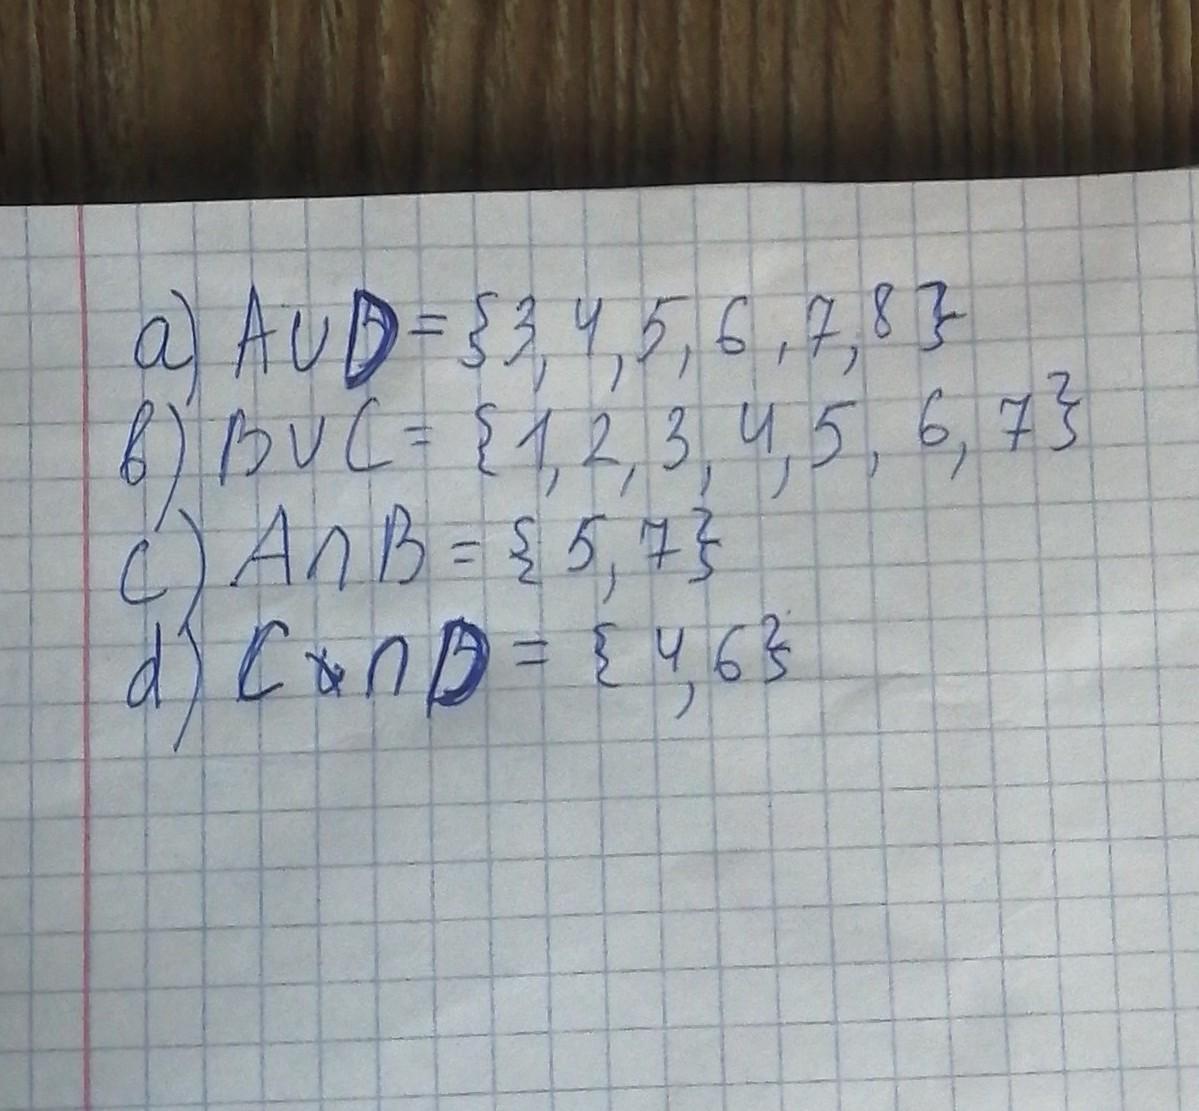 a) A∪D = {3, 4, 5, 6, 7, 8}
b) B∪C = {1, 2, 3, 4, 5, 6, 7}
c) A∩B = {5, 7}
d) C∩D = {4, 6}